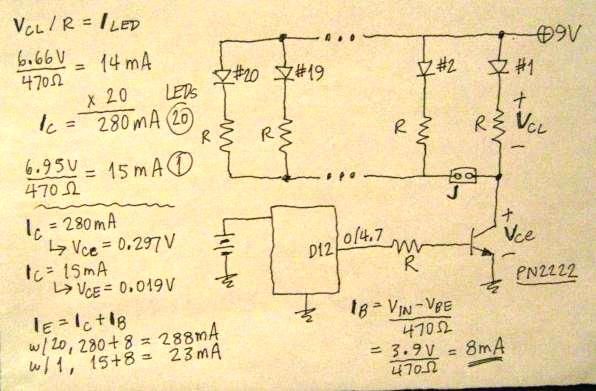 V_CL / R = I_LED
6.66V
470Ω
= 14mA
x 20 LEDs
I_C = 280mA (20)
6.95V
470Ω
= 15mA (1)
I_C = 280mA
↳ V_CE = 0.297V
I_C = 15mA
↳ V_CE = 0.019V
I_E = I_C + I_B
w/20, 280+8 = 288mA
w/1, 15+8 = 23mA
⊕9V
#20 #19 #2 #1
R R R R
+
V_CL
−
J
D12 0/4.7
R
+
V_CE
−
PN2222
I_B = V_IN − V_BE
470Ω
= 3.9V
470Ω
= 8mA